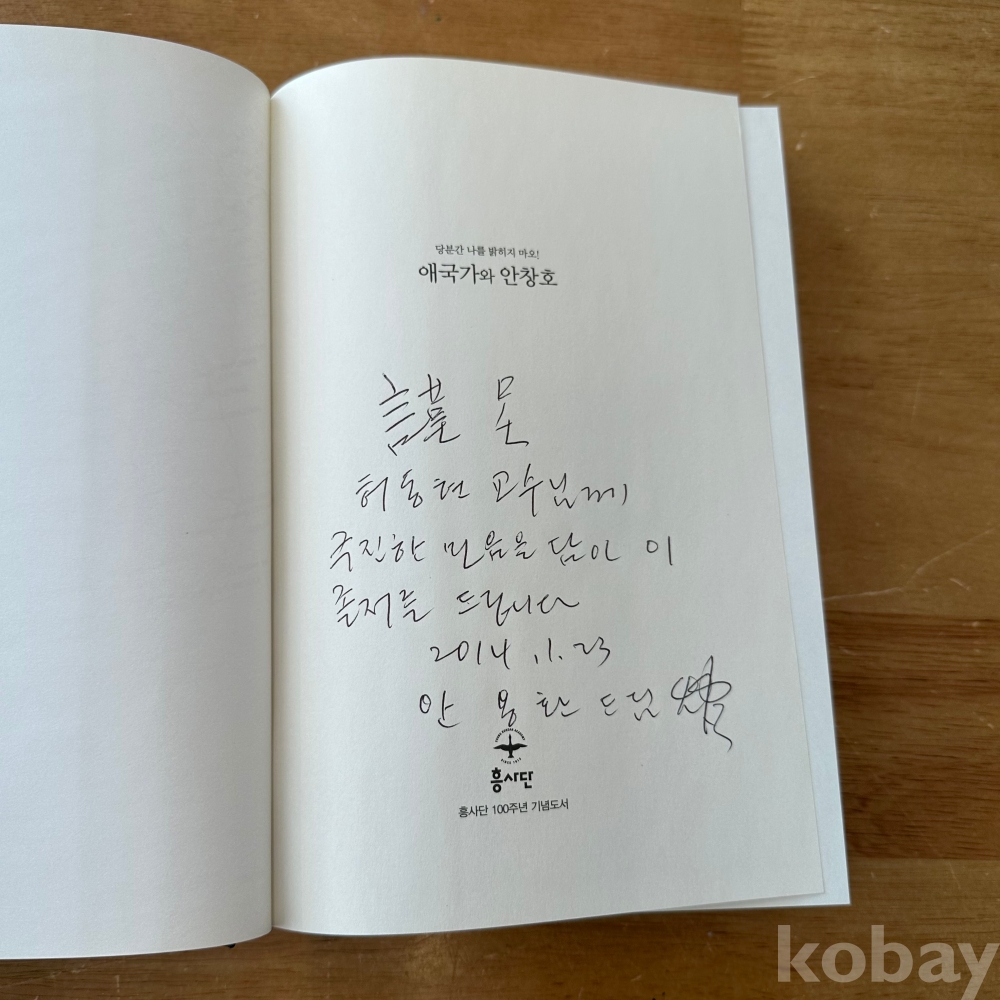 당분간 나를 밝히지 마오!
애국가와 안창호
謹呈
허동현 교수님께
극진한 마음을 담아 이
졸저를 드립니다
2014. 1. 23
안용환 드림
흥사단
흥사단 100주년 기념도서
kobay